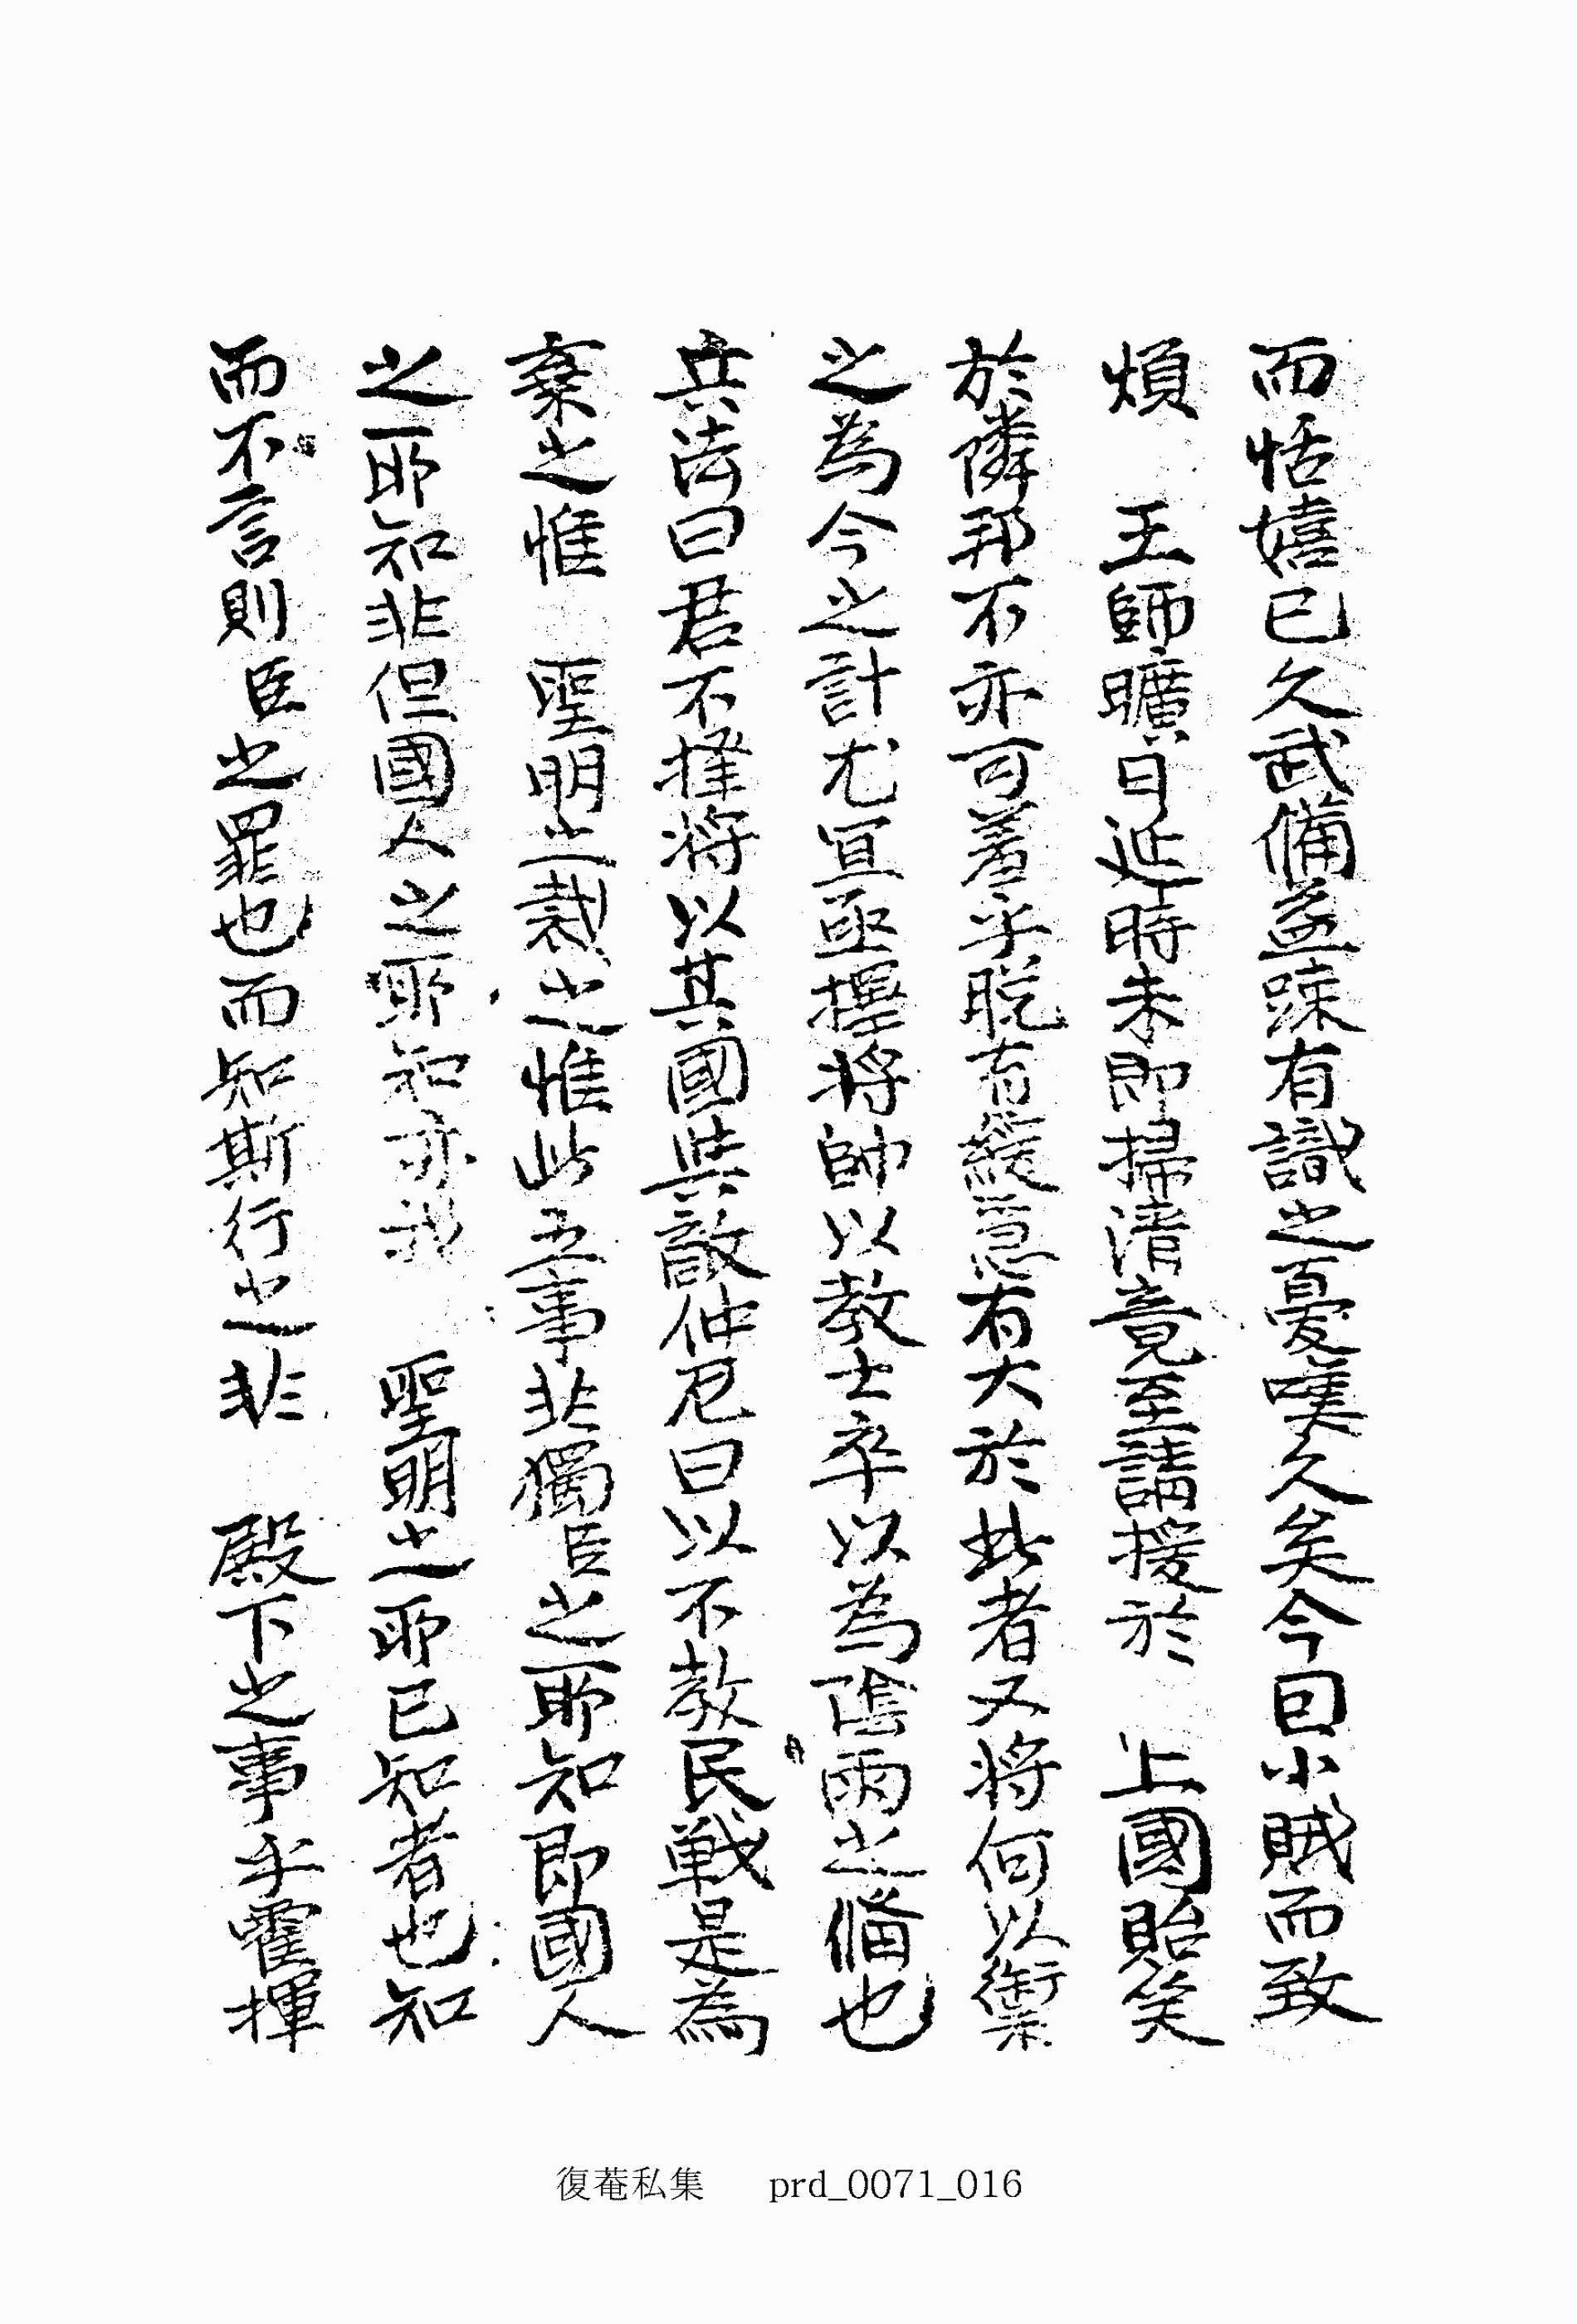 而恬嬉已久武備益踈有識之憂嘆久矣今回小賊而致
煩　王師曠日延時未即掃清竟至請援於　上國貽笑
於隣邦不亦可羞乎脫有緩急有大於此者又將何以禦
之為今之計尤宜亟擇將帥以教士卒以為陰雨之偹也
兵法曰君不擇將以其國與敵仲尼曰以不教民戰是為
棄之惟　聖明之裁之惟此五事非獨臣之所知即國人
之所知非但國人之所知亦我　聖明之所已知者也知
而不言則臣之罪也而知斯行之非　殿下之事乎霍揮
復菴私集　prd_0071_016